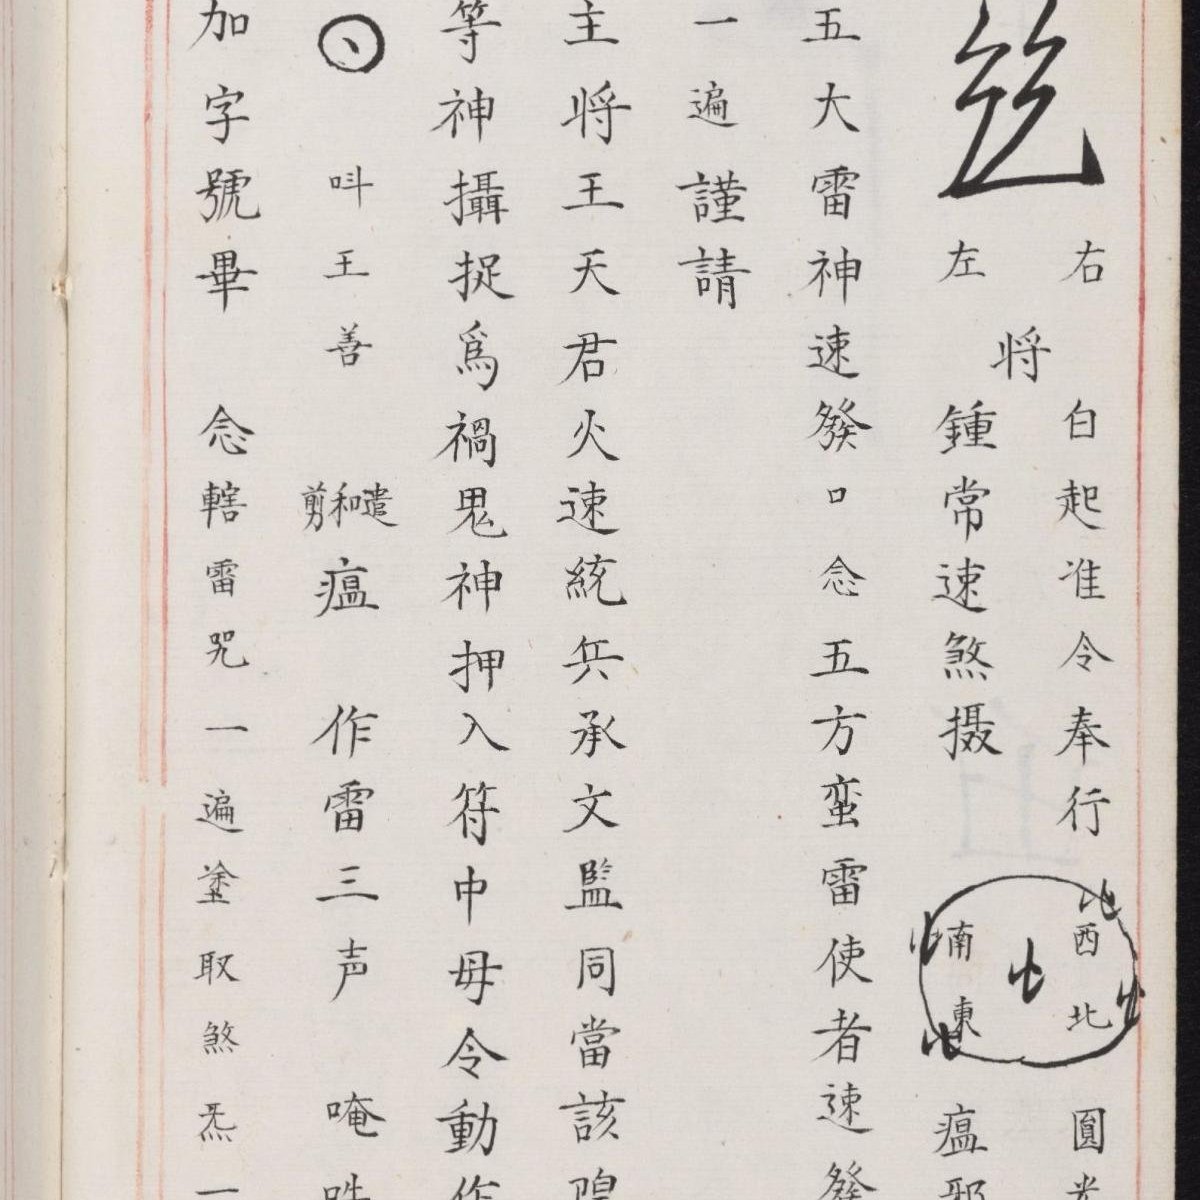 右 白起准令奉行 西北 圓光
左 將 鍾常速煞摄 南東 瘟邪
五大雷神速發口念五方蛮雷使者速發
一遍謹請
主將王天君火速統兵承文監同當該
等神攝捉為禍鬼神押入符中毋令動作
叫王善 遣和剪瘟 作雷三声 唵
加字號畢 念轄雷咒一遍塗取煞炁一